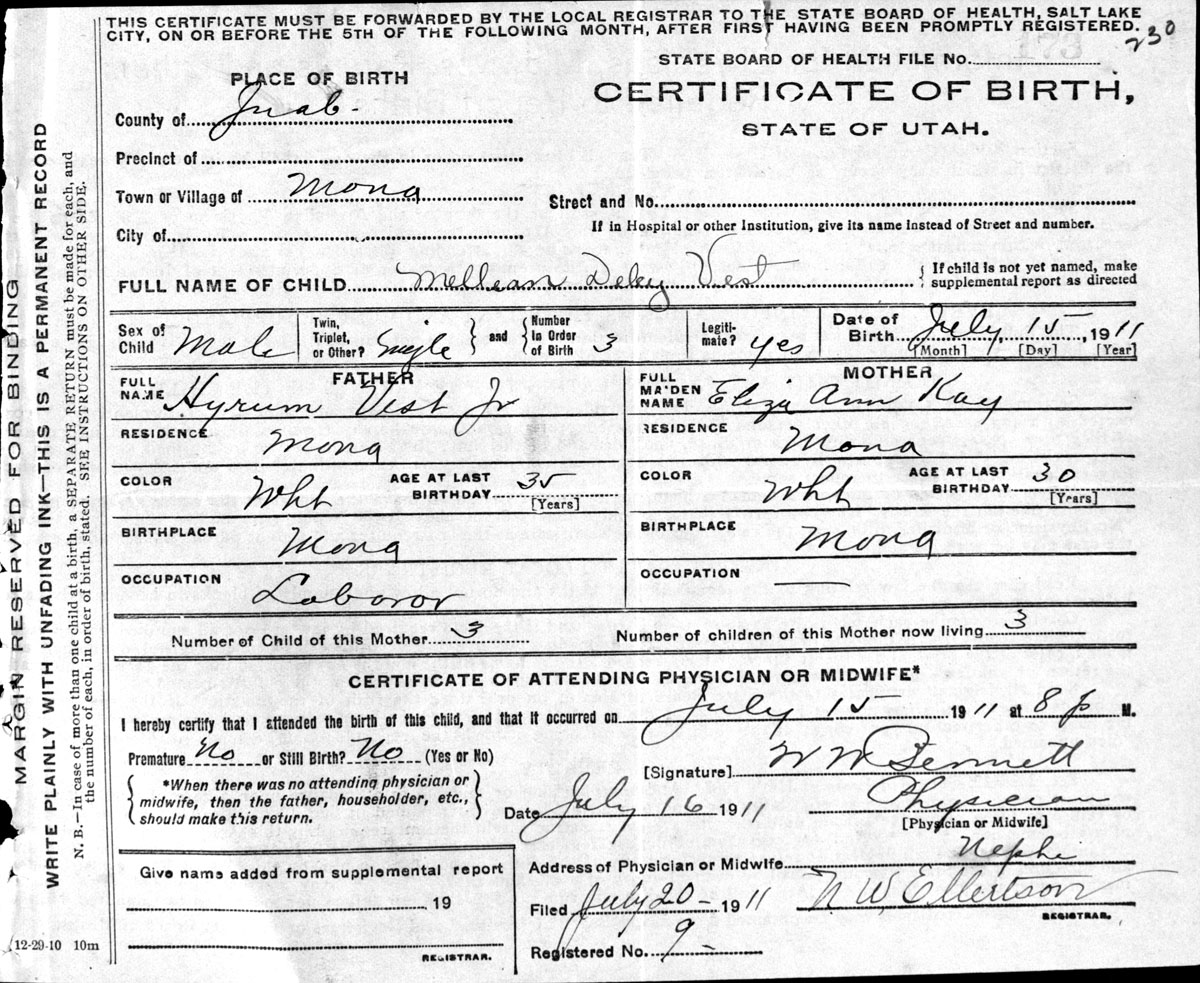 THIS CERTIFICATE MUST BE FORWARDED BY THE LOCAL REGISTRAR TO THE STATE BOARD OF HEALTH, SALT LAKE
CITY, ON OR BEFORE THE 5TH OF THE FOLLOWING MONTH, AFTER FIRST HAVING BEEN PROMPTLY REGISTERED.
230
STATE BOARD OF HEALTH FILE No.
PLACE OF BIRTH
CERTIFICATE OF BIRTH,
STATE OF UTAH.
County of Juab
Precinct of
Town or Village of Mona
Street and No.
If in Hospital or other Institution, give its name instead of Street and number.
City of
FULL NAME OF CHILD Vest
If child is not yet named, make
supplemental report as directed
Sex of
Child Male
Twin,
Triplet,
or Other? Single
and
Number
in Order
of Birth 3
Legiti-
mate? yes
Date of
Birth July, 15, 1911
[Month] [Day] [Year]
FATHER
FULL
NAME Hyrum Vest Jr
RESIDENCE Mona
COLOR Wht
AGE AT LAST
BIRTHDAY 35
[Years]
BIRTHPLACE Mona
OCCUPATION Laboror
MOTHER
FULL
MAIDEN
NAME Eliza Ann Kay
RESIDENCE Mona
COLOR Wht
AGE AT LAST
BIRTHDAY 30
(Years]
BIRTHPLACE Mona
OCCUPATION
Number of Child of this Mother 3
Number of children of this Mother now living 3
CERTIFICATE OF ATTENDING PHYSICIAN OR MIDWIFE*
I hereby certify that I attended the birth of this child, and that it occurred on July 15 1911 at 8 p M.
Premature No or Still Birth? No (Yes or No)
*When there was no attending physician or
midwife, then the father, householder, etc.,
should make this return.
[Signature] Bennett
Date July 16 1911
Physician
[Physician or Midwife]
Address of Physician or Midwife Nephi
Filed July 20 - 1911
N W Ellertson
REGISTRAR.
Registered No. 9 -
Give name added from supplemental report
19
REGISTRAR.
MARGIN RESERVED FOR BINDING
WRITE PLAINLY WITH UNFADING INK—THIS IS A PERMANENT RECORD
N. B.—In case of more than one child at a birth, a SEPARATE RETURN must be made for each, and
the number of each, in order of birth, stated. SEE INSTRUCTIONS ON OTHER SIDE.
(12-29-10 10m